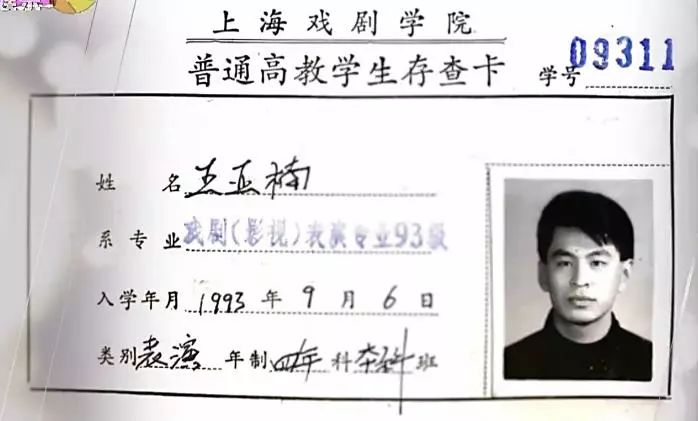 上海戏剧学院
普通高教学生存查卡
学号 09311
姓 名 王亚楠
系 专 业 戏剧(影视)表演专业93级
入学年月 1993 年 9 月 6 日
类别 表演 年制 四年 科 本科 班